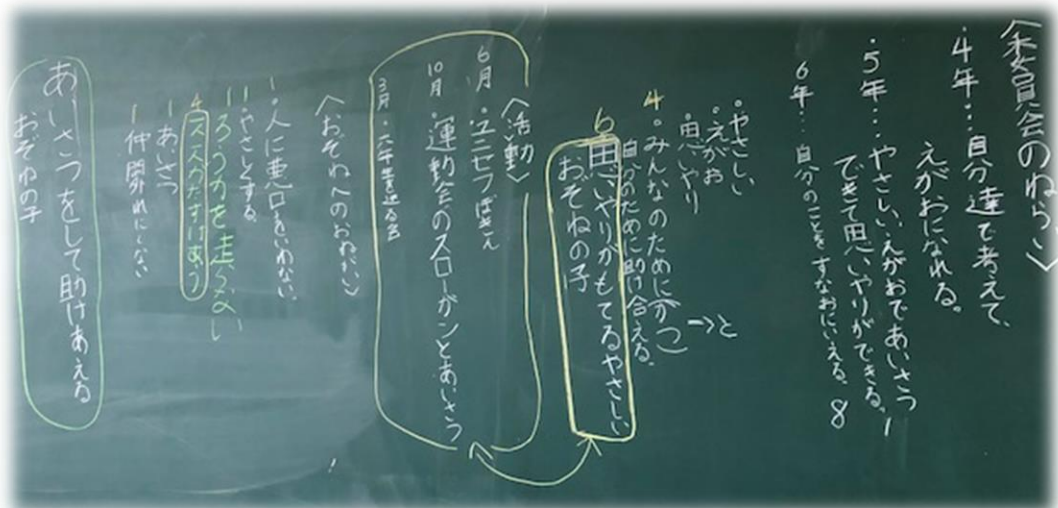 〈委員会のねらい〉
・4年…自分達で考えて、
えがおになれる。
・5年…やさしい、えがおであいさつ
できて思いやりができる。 1
6年…自分のことをすなおにいえる。 8
・やさしい
・えがお
・思いやり
4・みんなのために(かつ) →と
自分のために助け合える。
6
思いやりがもてるやさしい
おそねの子
〈活動〉
6月・ユニセフぼきん
10月・運動会のスローガンとあいさつ
3月・六年生を送る会
〈おそねへのおねがい〉
1・人に悪口をいわない。
11・やさしくする
11ろうかを走らない
4
1あいさつ
1仲間はずれにしない
あいさつをして助けあえる
おそねの子